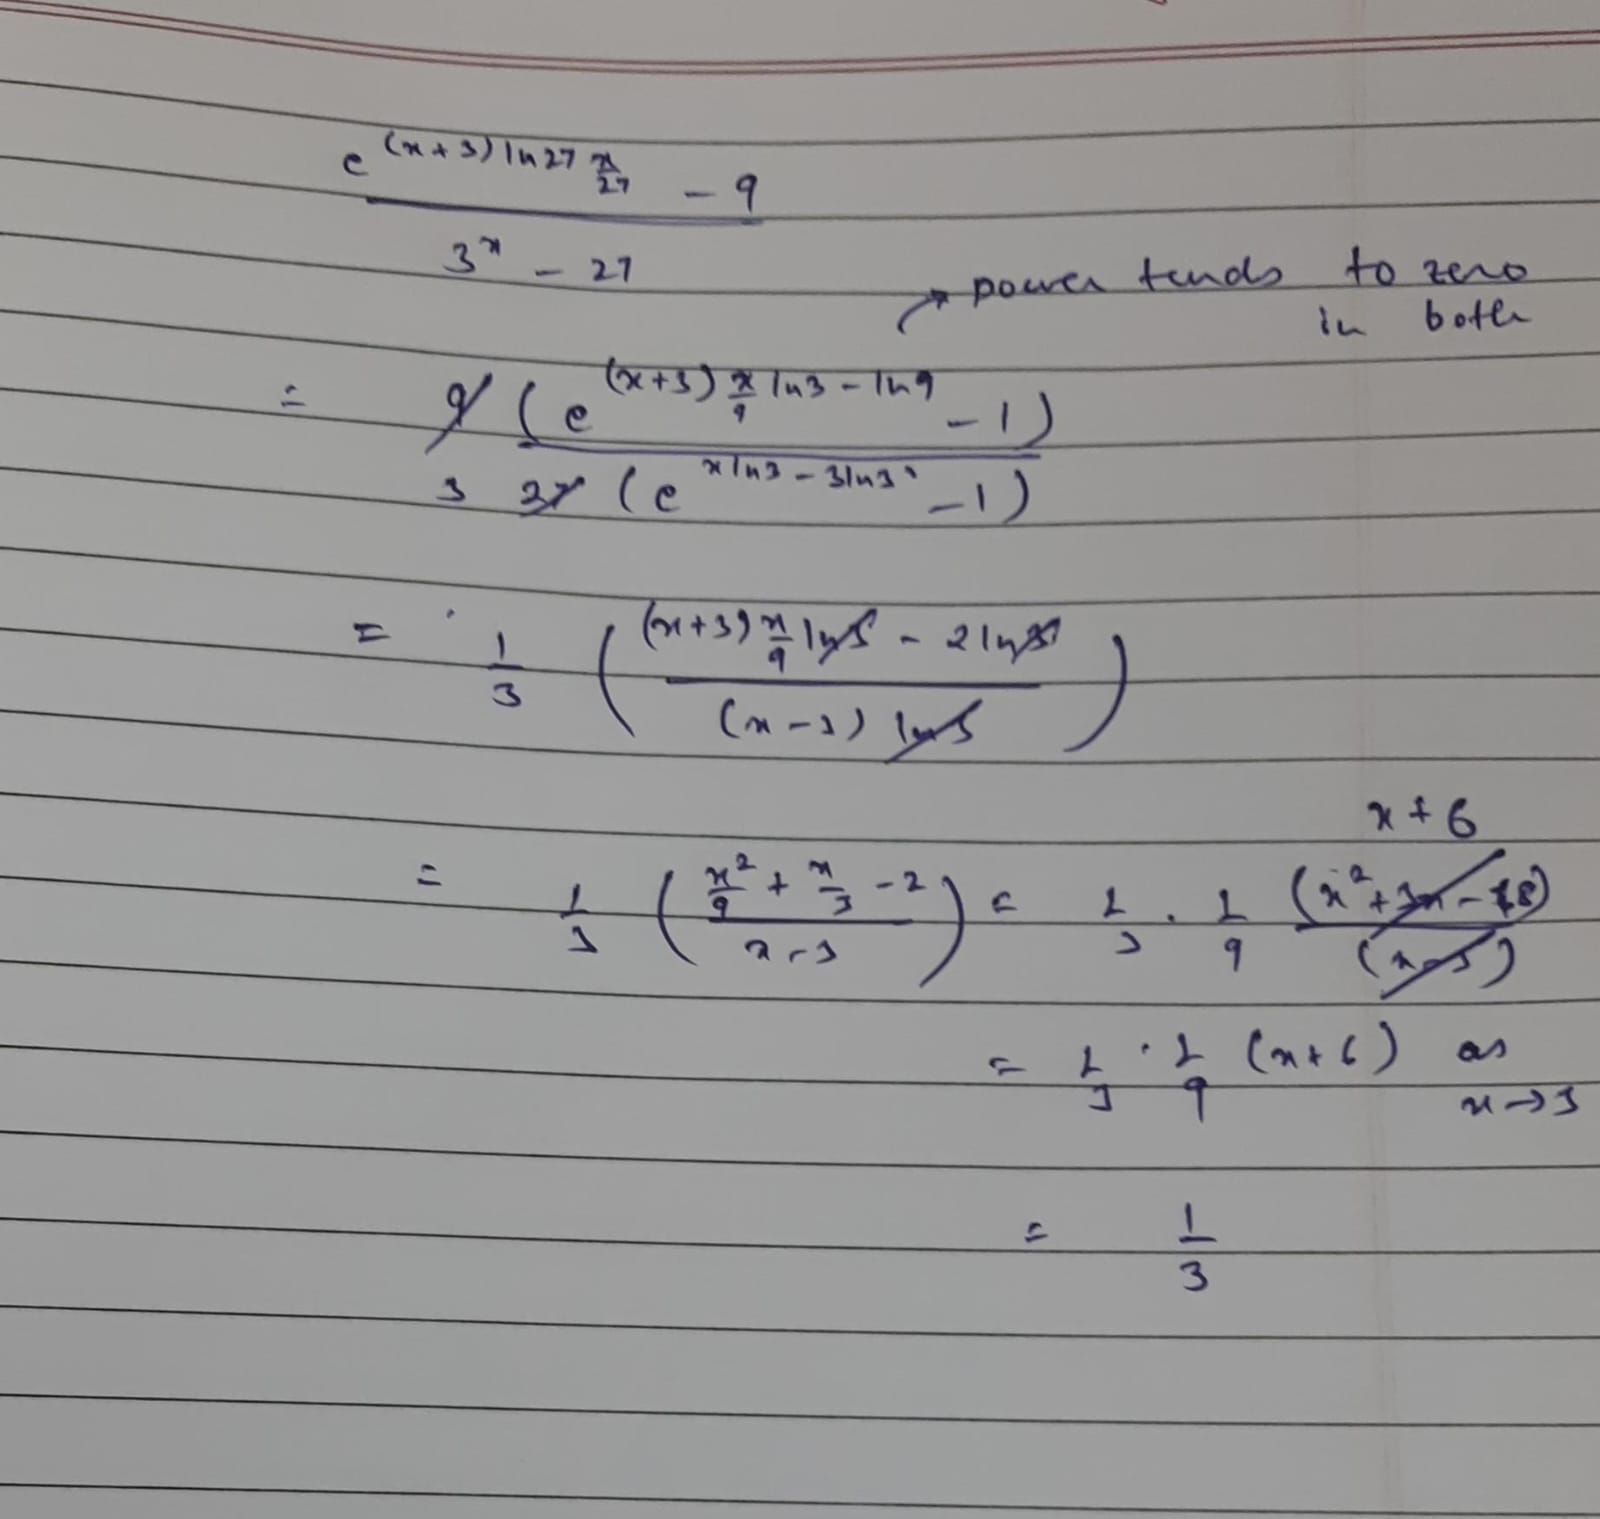 e^{(x+3) ln27 x/27} - 9
3^x - 27
→ power tends to zero
in both
= 9 (e^{(x+3) x/9 ln3 - ln9} - 1)
3 27 (e^{x ln3 - 3ln3} - 1)
= 1/3 ( (x+3) x/9 ln3 - 2 ln3 / (x-3) ln3 )
x + 6
= 1/3 ( x²/9 + x/3 - 2 / x-3 ) = 1/3 . 1/9 (x² + 3x - 18) / (x-3)
= 1/3 . 1/9 (x+6) as
x → 3
= 1/3